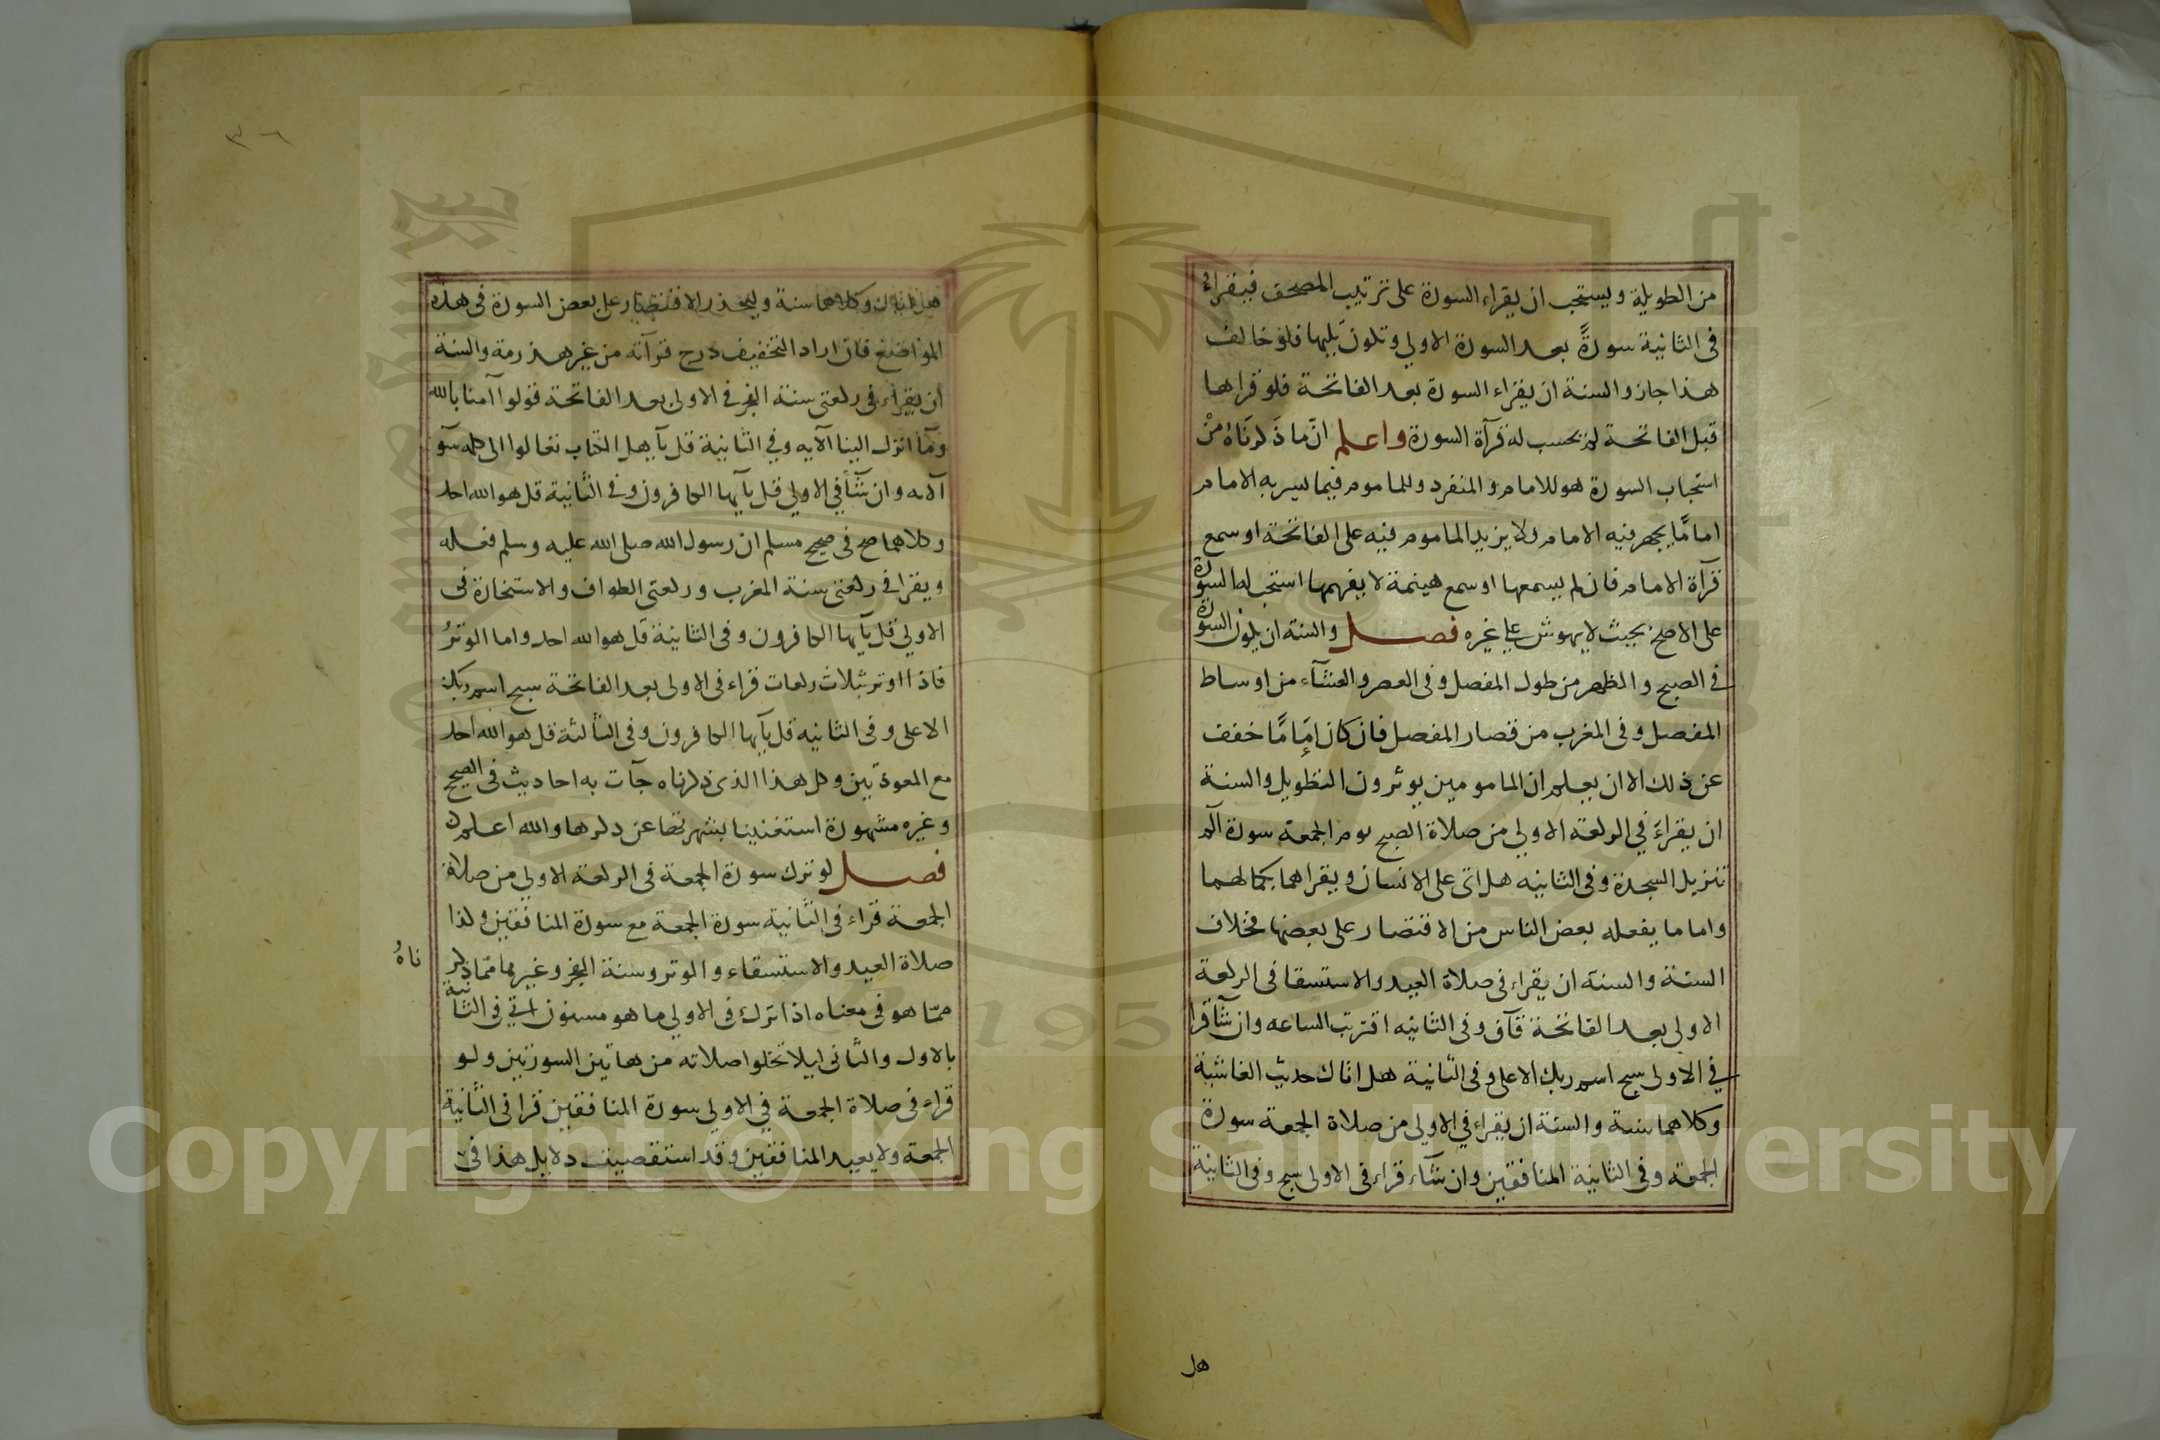 من الطويلة ويستحب ان يقراء السورة على ترتيب المصحف فيقراء
فى الثانية سورةً بعد السورة الاولي وتكون يليها فلو خالف
هذا جاز والسنة ان يقراء السورة بعد الفاتحة فلو قراها
قبل الفاتحة لم يحسب له قرآة السورة واعلم ان ما ذكرناه من
استحباب السورة هو للامام والمنفرد وللماموم فيما يسر به الامام
اما ما يجهر فيه الامام ولا يزيد الماموم فيه على الفاتحة او سمع
قرآة الامام فان لم يسمعها او سمع هينمة لا يفهمها استحب له السورة
على الاصح بحيث لا يهوش على غيره فصل والسنة ان يكون السورة
في الصبح والظهر من طول المفصل وفى العصر والعشآء من اوساط
المفصل وفى المغرب من قصار المفصل فان كان اماما خفف
عن ذلك الا ان يعلم ان المامومين يوثرون التطويل والسنة
ان يقراء في الركعة الاولي من صلاة الصبح يوم الجمعة سورة آلم
تنزيل السجدة وفى الثانيه هل اتى على الانسان ويقراهما بكمالهما
واما ما يفعله بعض الناس من الاقتصار على بعضها فخلاف
السنة والسنة ان يقراء فى صلاة العيد والاستسقا فى الركعة
الاولى بعد الفاتحة قآف وفى الثانيه اقتربت الساعه وان شآ قرا
في الاولى سبح اسم ربك الاعلى وفى الثانية هل اتاك حديث الغاشية
وكلاهما سنة والسنة ان يقراء في الاولى من صلاة الجمعة سورة
الجمعة وفى الثانية المنافقين وان شآء قراء فى الاولى سبح وفى الثانية
هل
هل اتاك وكلاهما سنة وليحذر الاقتصار على بعض السورة فى هذه
المواضع فان اراد التخفيف درج قرآته من غير هذرمة والسنة
ان يقراء فى ركعتى سنة الفجر فى الاولى بعد الفاتحة قولوا آمنا بالله
وما انزل الينا الآيه وفي الثانية قل يآ اهل الكتاب تعالوا الى كلمه سوآ
آلآيه وان شآ في الاولي قل يآ ايها الكافرون وفى الثانية قل هو الله احد
وكلاهما صح فى صحيح مسلم ان رسول الله صلى الله عليه وسلم فعله
ويقرا في ركعتى سنة المغرب وركعتى الطواف والاستخارة فى
الاولي قل يآ ايها الكافرون وفى الثانية قل هو الله احد واما الوتر
فاذا اوتر بثلاث ركعات قراء فى الاولى بعد الفاتحة سبح اسم ربك
الاعلى وفى الثانيه قل يآ ايها الكافرون وفى الثالثة قل هو الله احد
مع المعوذتين وكل هذا الذى ذكرناه جآت به احاديث فى الصحيح
وغيره مشهورة استغنينا بشهرتها عن ذكرها والله اعلم
فصل لو ترك سورة الجمعة فى الركعة الاولي من صلاة
الجمعة قراء فى الثانية سورة الجمعة مع سورة المنافقين وكذا
صلاة العيد والاستسقاء والوتر وسنة الفجر وغيرها مما ذكر
ناهُ
مما هو فى معناه اذا ترك فى الاولي ما هو مسنون اتي فى الثانية
بالاول والثانى ليلا تخلوا صلاته من هاتين السورتين ولو
قراء فى صلاة الجمعة في الاولي سورة المنافقين قرا فى الثانية
الجمعة ولا يعيد المنافقين وقد استقصيت دلايل هذا فى
Copyright © King Saud University